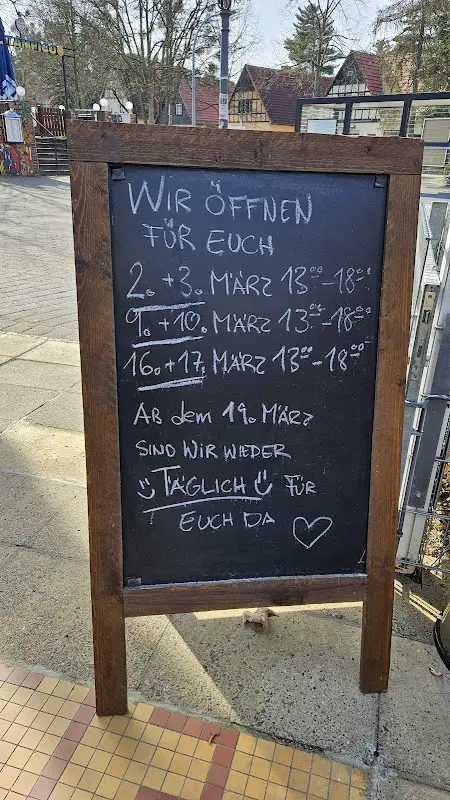 TAMPICO
WIR ÖFFNEN
FÜR EUCH
2. + 3. MÄRZ 13⁰⁰-18⁰⁰
9. + 10. MÄRZ 13⁰⁰-18⁰⁰
16. + 17. MÄRZ 13⁰⁰-18⁰⁰
AB dem 19. MÄRZ
SIND WIR WIEDER
TÄGLICH FÜR
EUCH DA